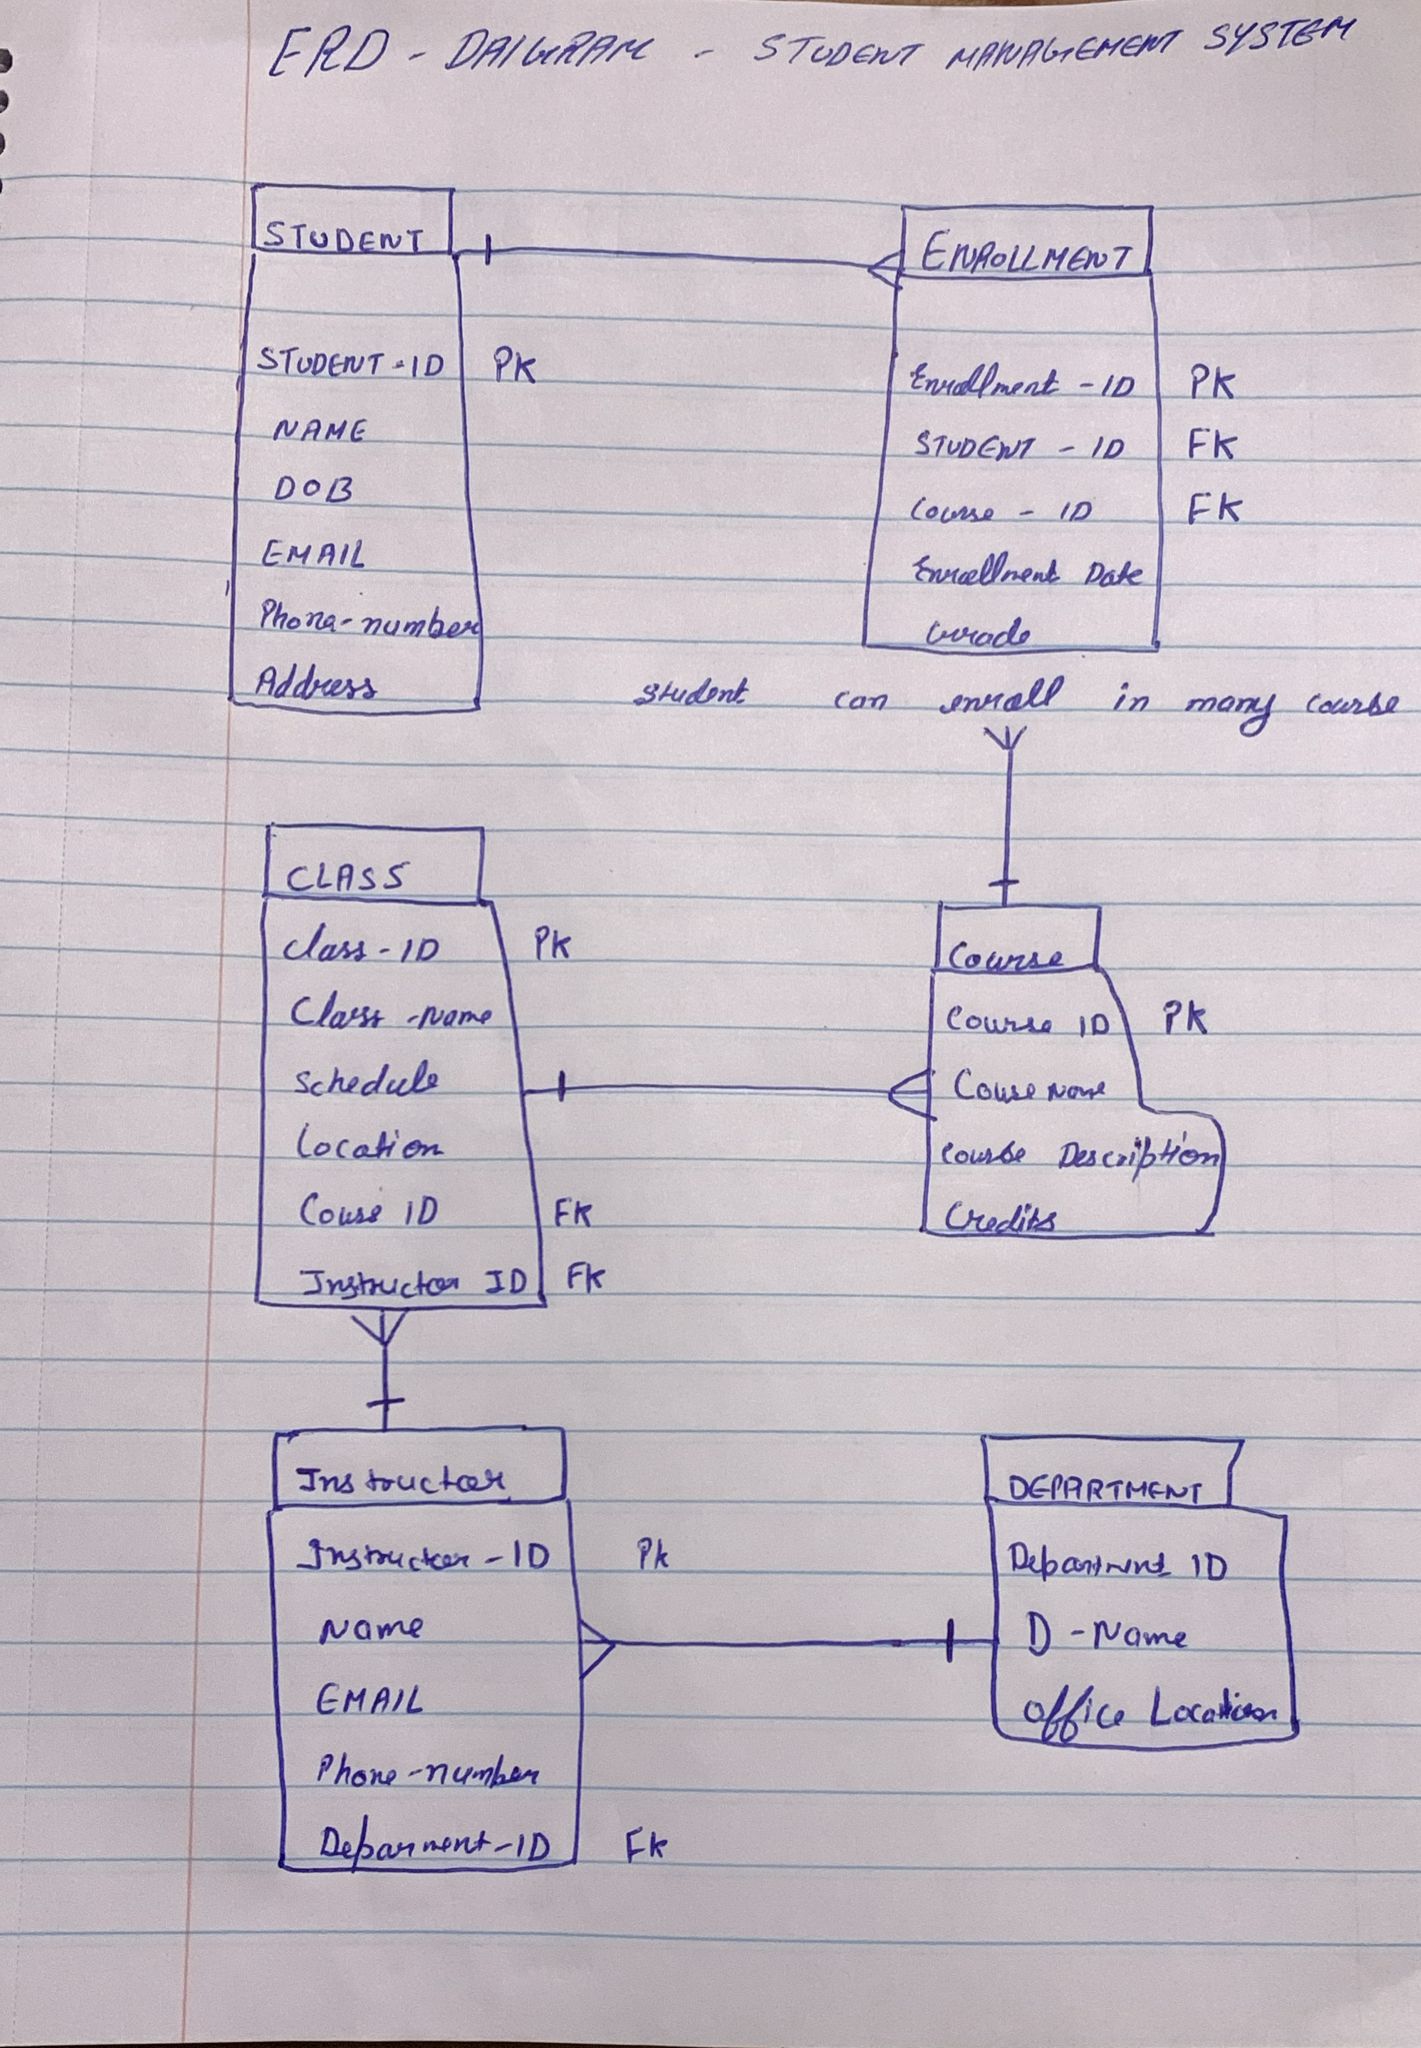 ERD - DAIGRAM - STUDENT MANAGEMENT SYSTEM
STUDENT
STUDENT-ID PK
NAME
DOB
EMAIL
Phone-number
Address
ENROLLMENT
Enrollment-ID PK
STUDENT-ID FK
Course-ID FK
Enrollment Date
Grade
Student can enroll in many course
CLASS
Class-ID PK
Class-Name
Schedule
Location
Couse ID FK
Instructor ID FK
Course
Course ID PK
Couse Name
Course Description
Credits
Instructor
Instructor-ID Pk
Name
EMAIL
Phone-number
Deparment-ID Fk
DEPARTMENT
Department ID
D-Name
Office Location